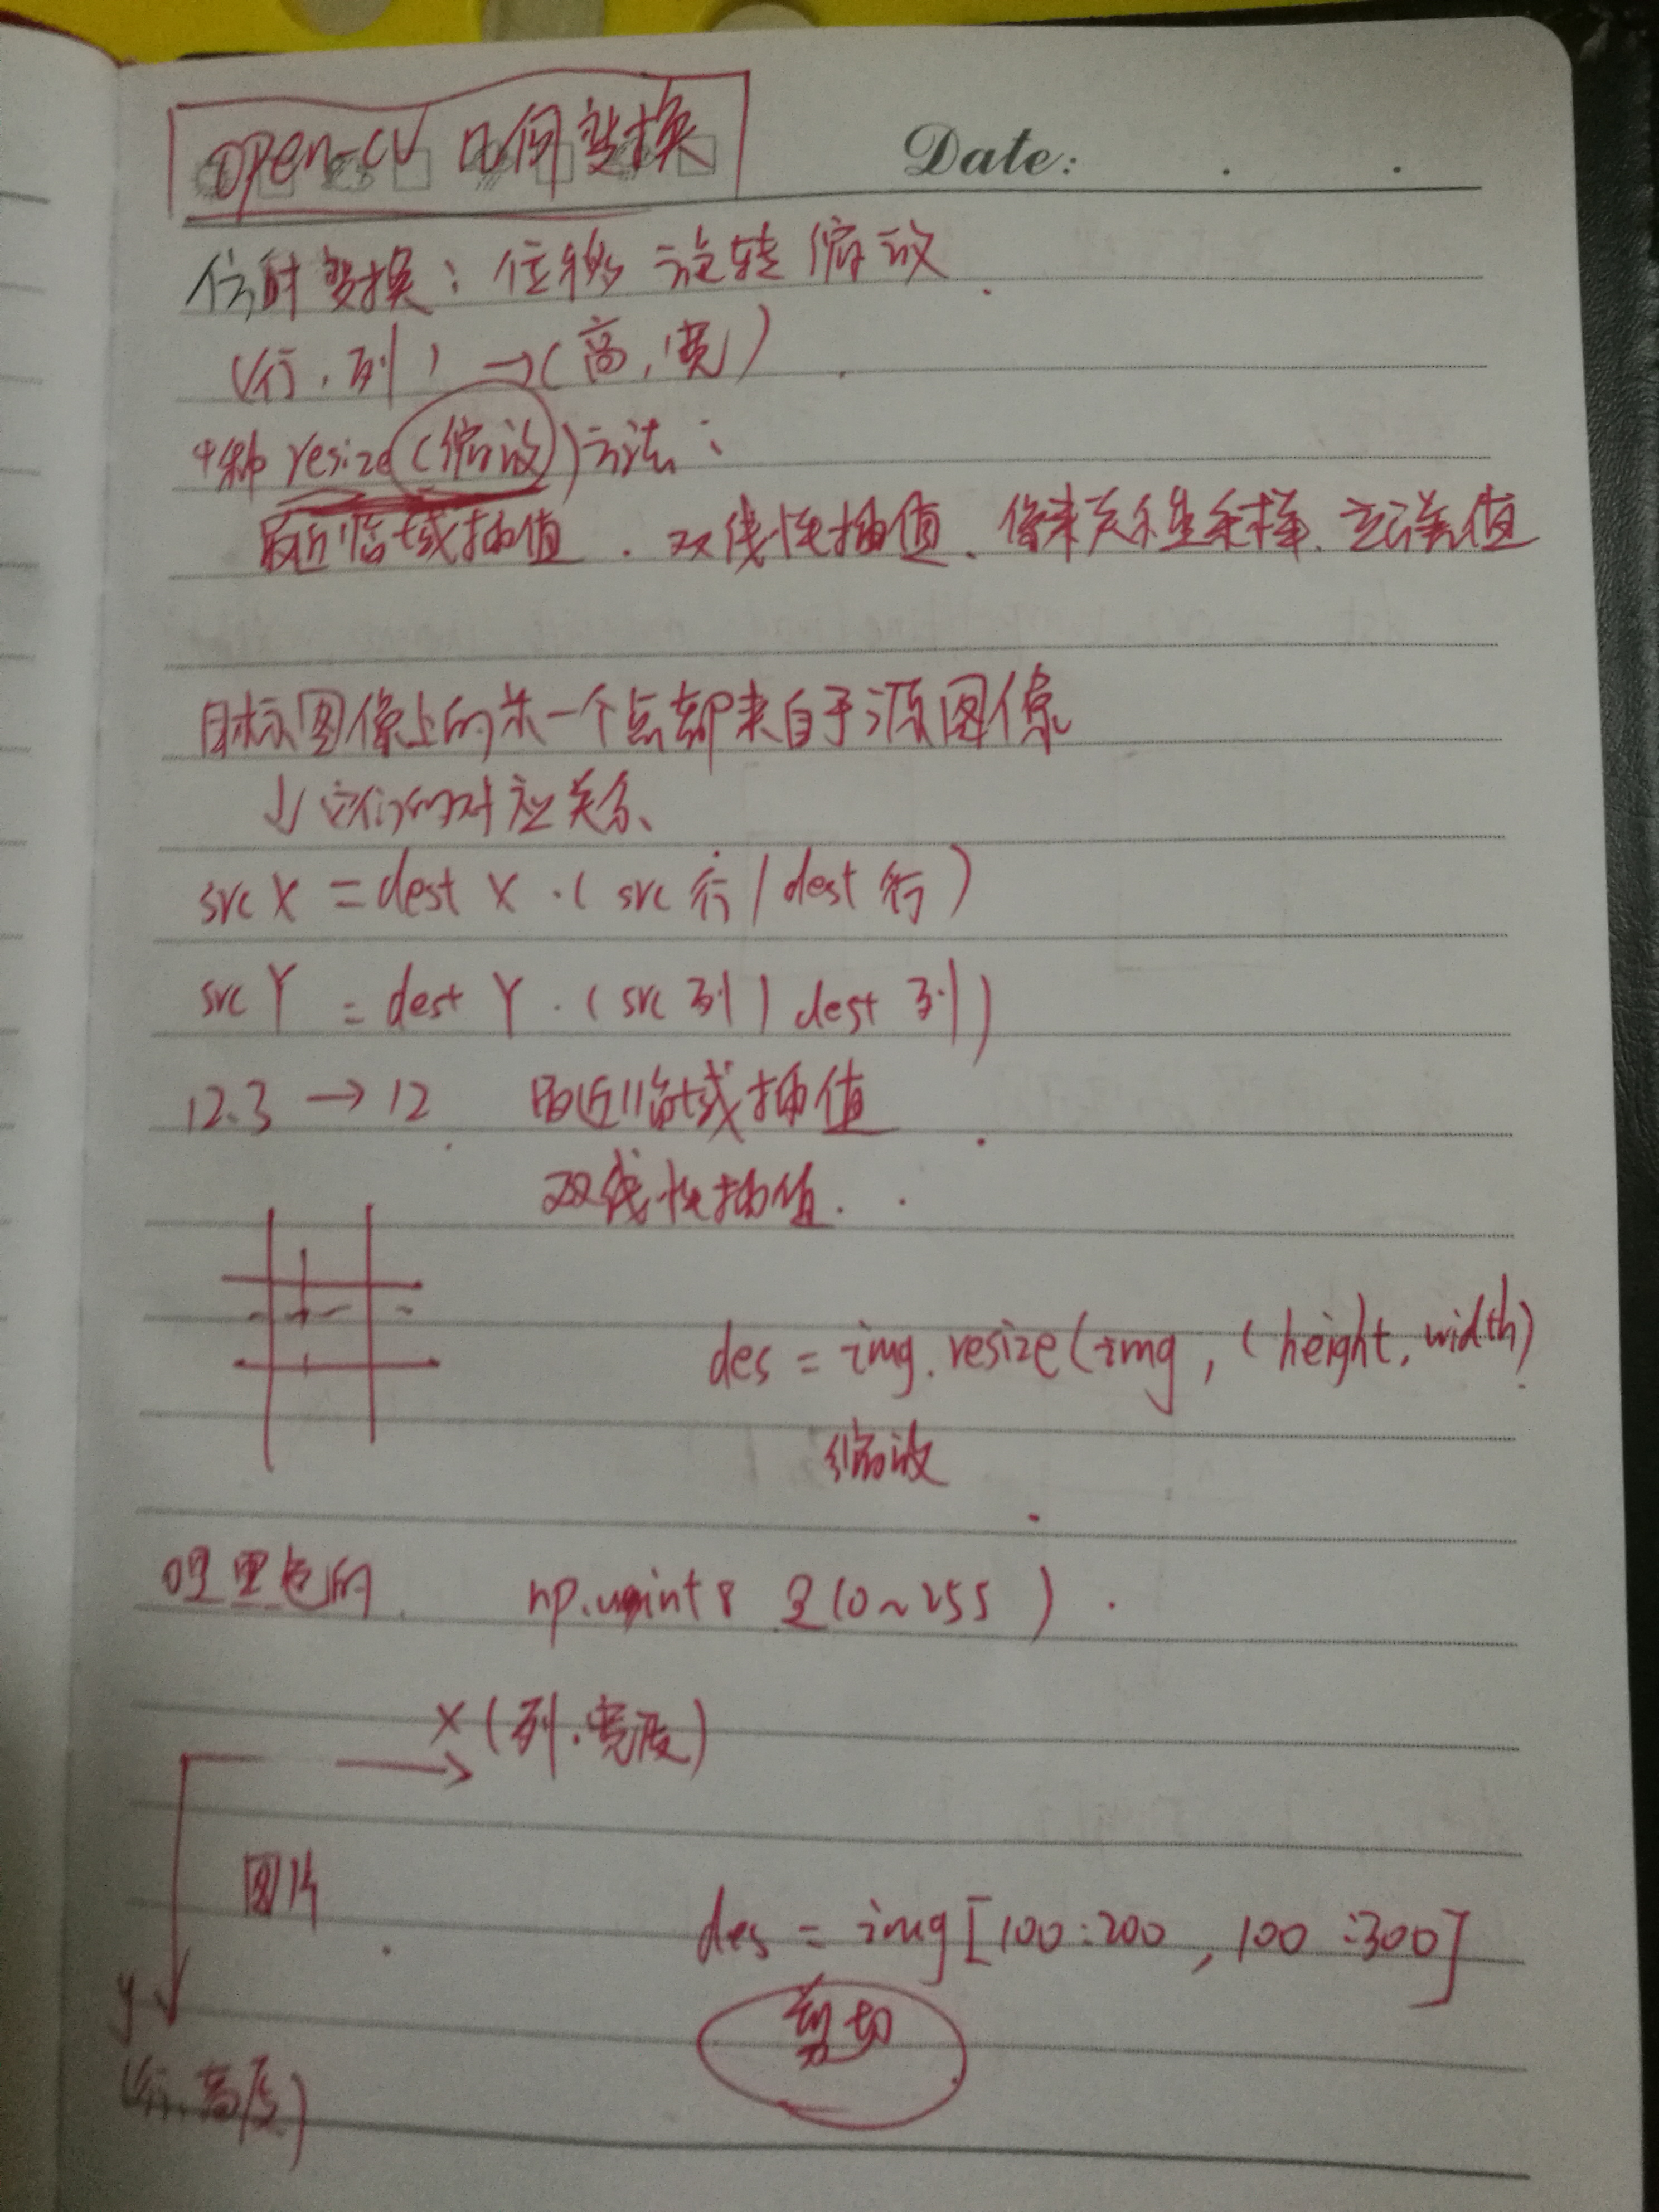 open-cv 几何变换
Date:
仿射变换：位移 旋转 缩放
(行，列) →(高，宽)
4种 resize(缩放)方法：
最近临域插值．双线性插值、像素关系重采样、立方插值
目标图像上的某一个点都来自于源图像
↓它们的对应关系、
src X = dest X ·( src 行 / dest 行 )
src Y = dest Y ·( src 列 / dest 列 )
12.3 → 12 最近临域插值
双线性插值．
des = img.resize(img, (height, width)
缩放
黑色的 np.uint8 是(0~255)
X (列．宽度)
图片
des = img[100:200 , 100 :300]
y
剪切
(行．高度)